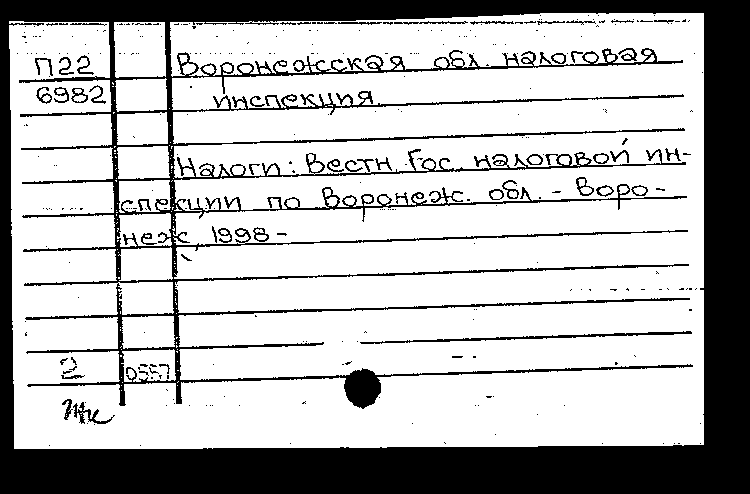 П22 Воронежская обл. налоговая
6982 инспекция
Налоги: Вестн. Гос. налоговой ин-
спекции по Воронеж. обл. - Воро-
неж, 1998 -
2 0557